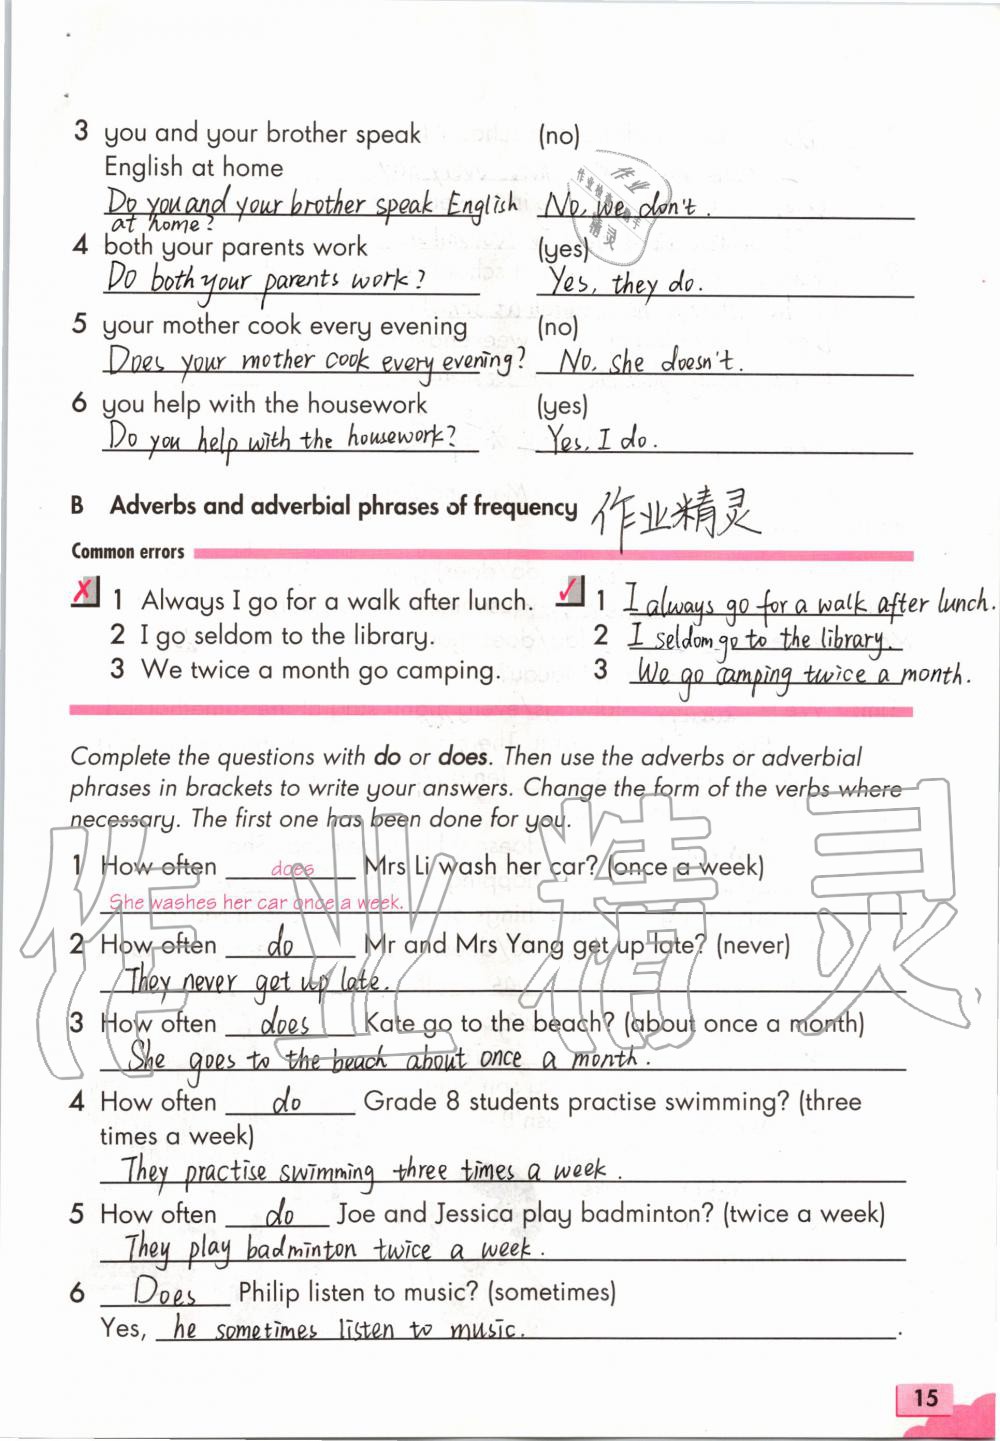 3 you and your brother speak (no)
English at home
Do you and your brother speak English No, we don't.
at home?
4 both your parents work (yes)
Do both your parents work? Yes, they do.
5 your mother cook every evening (no)
Does your mother cook every evening? No, she doesn't.
6 you help with the housework (yes)
Do you help with the housework? Yes, I do.
B Adverbs and adverbial phrases of frequency 作业精灵
Common errors
✗ 1 Always I go for a walk after lunch. ✓ 1 I always go for a walk after lunch.
2 I go seldom to the library. 2 I seldom go to the library.
3 We twice a month go camping. 3 We go camping twice a month.
Complete the questions with do or does. Then use the adverbs or adverbial
phrases in brackets to write your answers. Change the form of the verbs where
necessary. The first one has been done for you.
1 How often does Mrs Li wash her car? (once a week)
She washes her car once a week.
2 How often do Mr and Mrs Yang get up late? (never)
They never get up late.
3 How often does Kate go to the beach? (about once a month)
She goes to the beach about once a month.
4 How often do Grade 8 students practise swimming? (three
times a week)
They practise swimming three times a week.
5 How often do Joe and Jessica play badminton? (twice a week)
They play badminton twice a week.
6 Does Philip listen to music? (sometimes)
Yes, he sometimes listen to music.
作业精灵
15